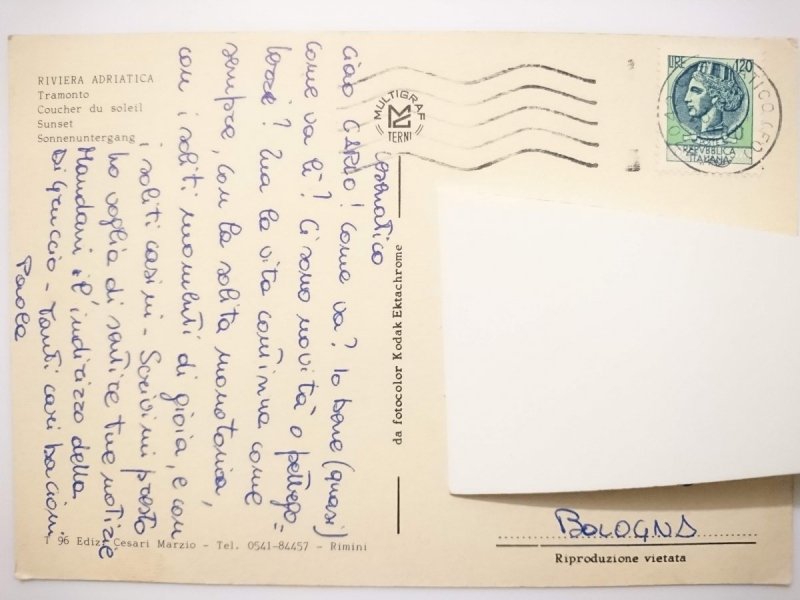 RIVIERA ADRIATICA
Tramonto
Coucher du soleil
Sunset
Sonnenuntergang
Cesenatico
Ciao CARLO! Come va? Io bene (quasi)
come va lì? Ci sono novità o pettego=
lezzi? Qua la vita continua come
sempre, con la solita monotonia,
con i soliti momenti di gioia, e con
i soliti casini - Scrivimi presto
ho voglia di sentire tue notizie
Mandami l'indirizzo della
Di Gruccio - Tanti cari bacioni
Paola
T 96 Ediz. Cesari Marzio - Tel. 0541-84457 - Rimini
da fotocolor Kodak Ektachrome
MULTIGRAF
TERNI
LIRE 120
REPVBBLICA
ITALIANA
BOLOGNA
Riproduzione vietata